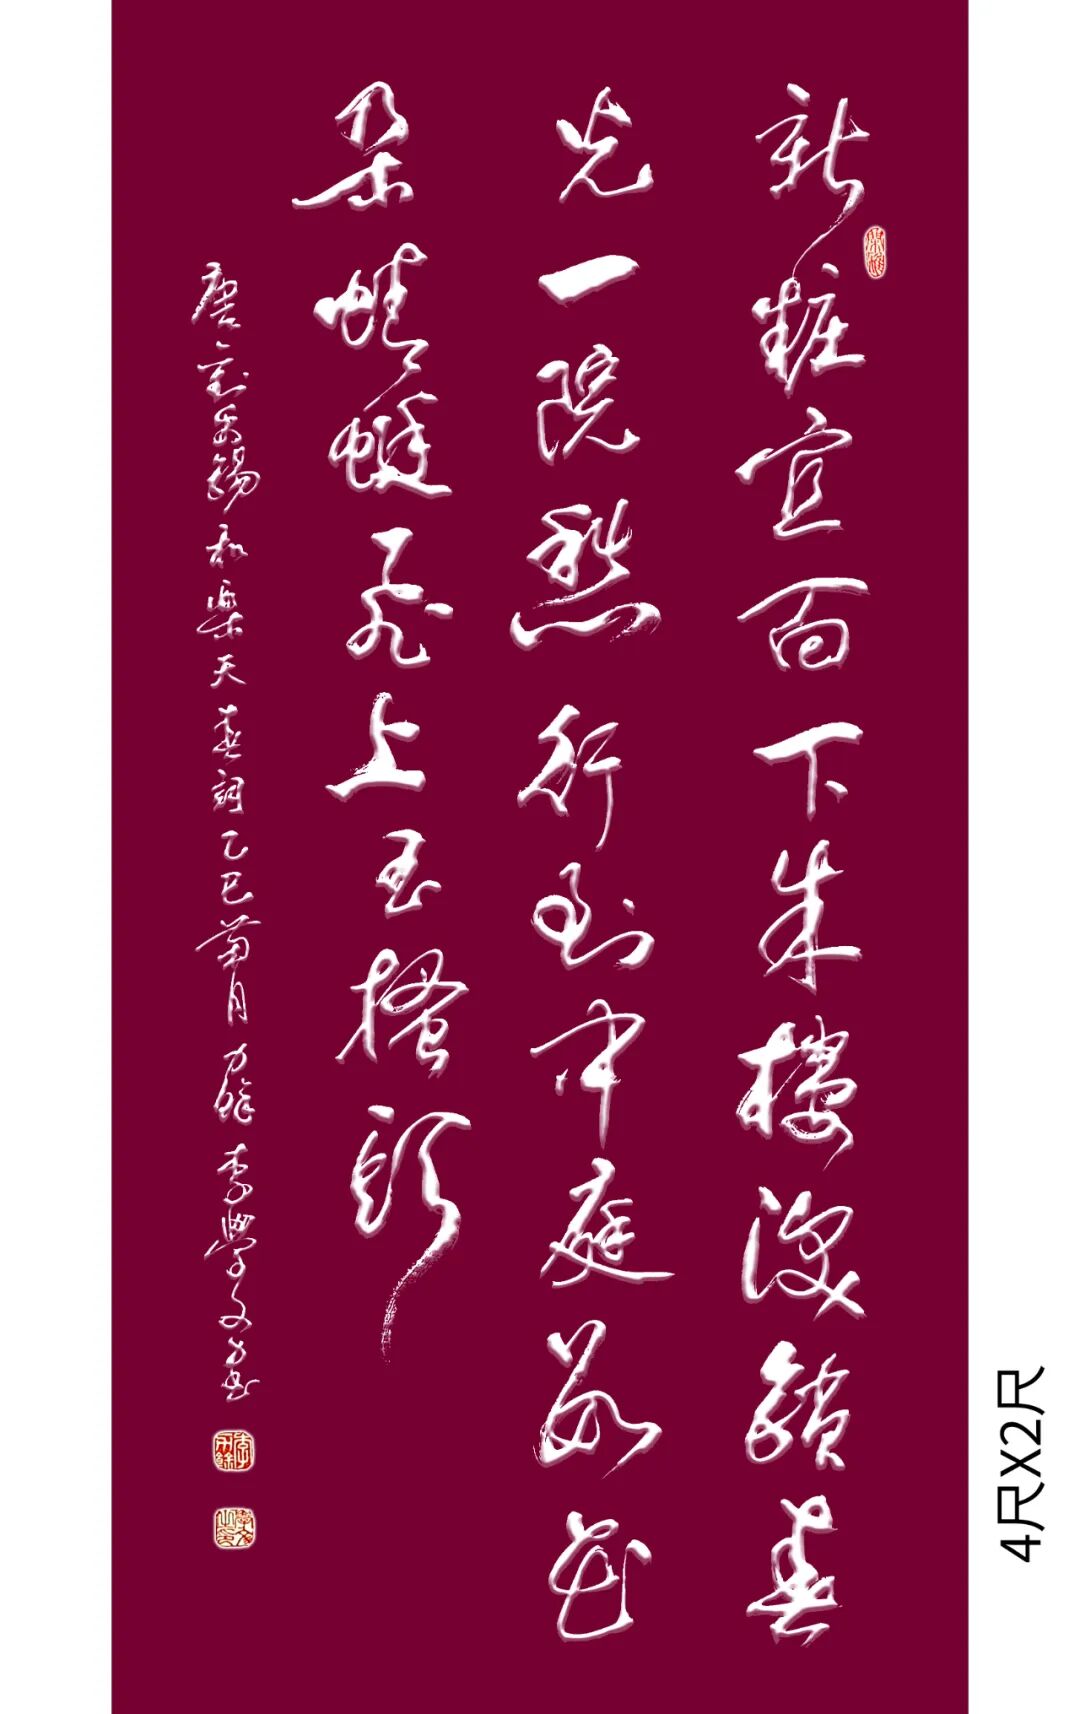 新粧宜面下朱樓深鎖春
光一院愁行到中庭數花
朵蜻蜓飛上玉搔頭
唐劉禹錫和樂天春詞乙巳蒲月力餘李學文書
4尺X2尺